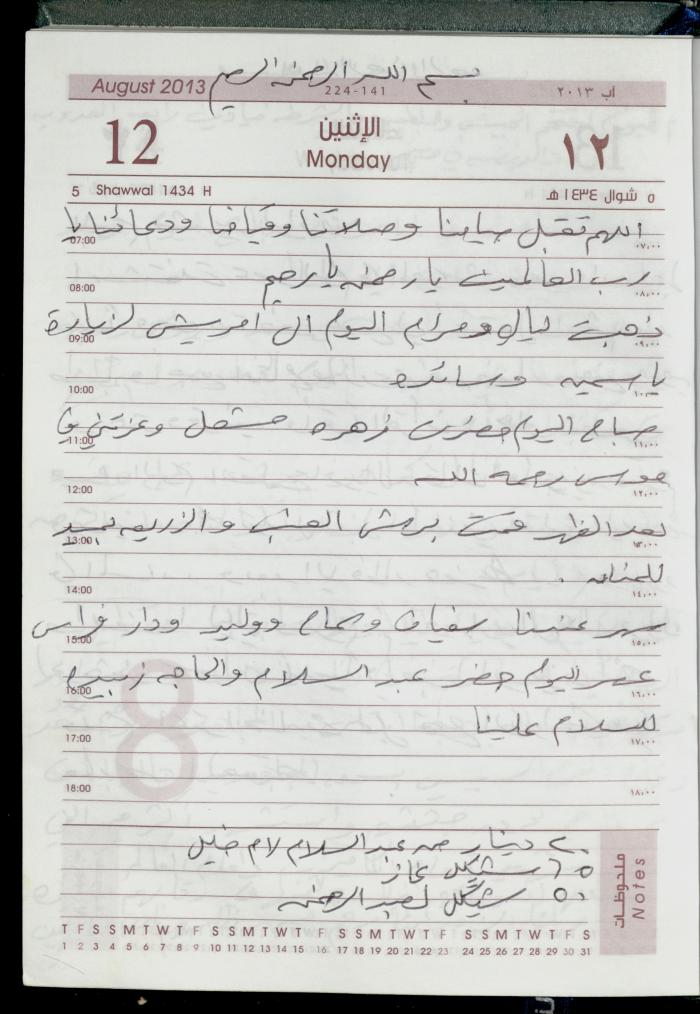 بسم الله الرحمن الرحيم
August 2013
224-141
آب ٢٠١٣
12
الإثنين
Monday
١٢
5 Shawwal 1434 H
٥ شوال ١٤٣٤ هـ
اللهم تقبل صيامنا وصلاتنا وقيامنا ودعائنا يا
07:00 ٠٧:٠٠
رب العالمين يا رحمن يا رحيم
08:00 ٠٨:٠٠
ذهبت ليالي ومرام اليوم الى لزيارة
09:00 ٠٩:٠٠
ياسمينه وسائده
10:00 ١٠:٠٠
صباح اليوم حضرت زهره مشعل
11:00 ١١:٠٠
رحمه الله
12:00 ١٢:٠٠
بعد الظهر قمت برش العشب
13:00 ١٣:٠٠
14:00 ١٤:٠٠
سهر عندنا سفيان وسماح ووليد ودار فراس
15:00 ١٥:٠٠
عصر اليوم حضر عبد السلام والحاجه زبيده
16:00 ١٦:٠٠
للسلام علينا
17:00 ١٧:٠٠
18:00 ١٨:٠٠
٢٠ دينار من عبد السلام لام خليل
٦٥ شيكل غاز
٥٠ شيكل لعبد الرحمن
ملحوظات
Notes
T F S S M T W T F S S M T W T F S S M T W T F S S M T W T F S
1 2 3 4 5 6 7 8 9 10 11 12 13 14 15 16 17 18 19 20 21 22 23 24 25 26 27 28 29 30 31